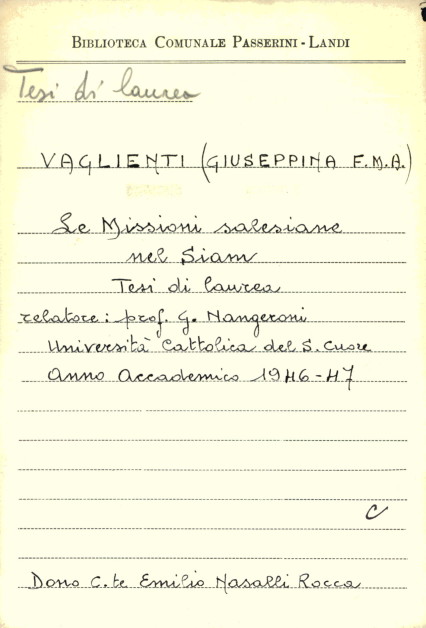 BIBLIOTECA COMUNALE PASSERINI-LANDI
Tesi di laurea
VAGLIENTI (GIUSEPPINA F.M.A.)
Le Missioni salesiane
nel Siam
Tesi di laurea
relatore: prof. G. Nangeroni
Università Cattolica del S. Cuore
Anno Accademico 1946-47
C
Dono C.te Emilio Nasalli Rocca